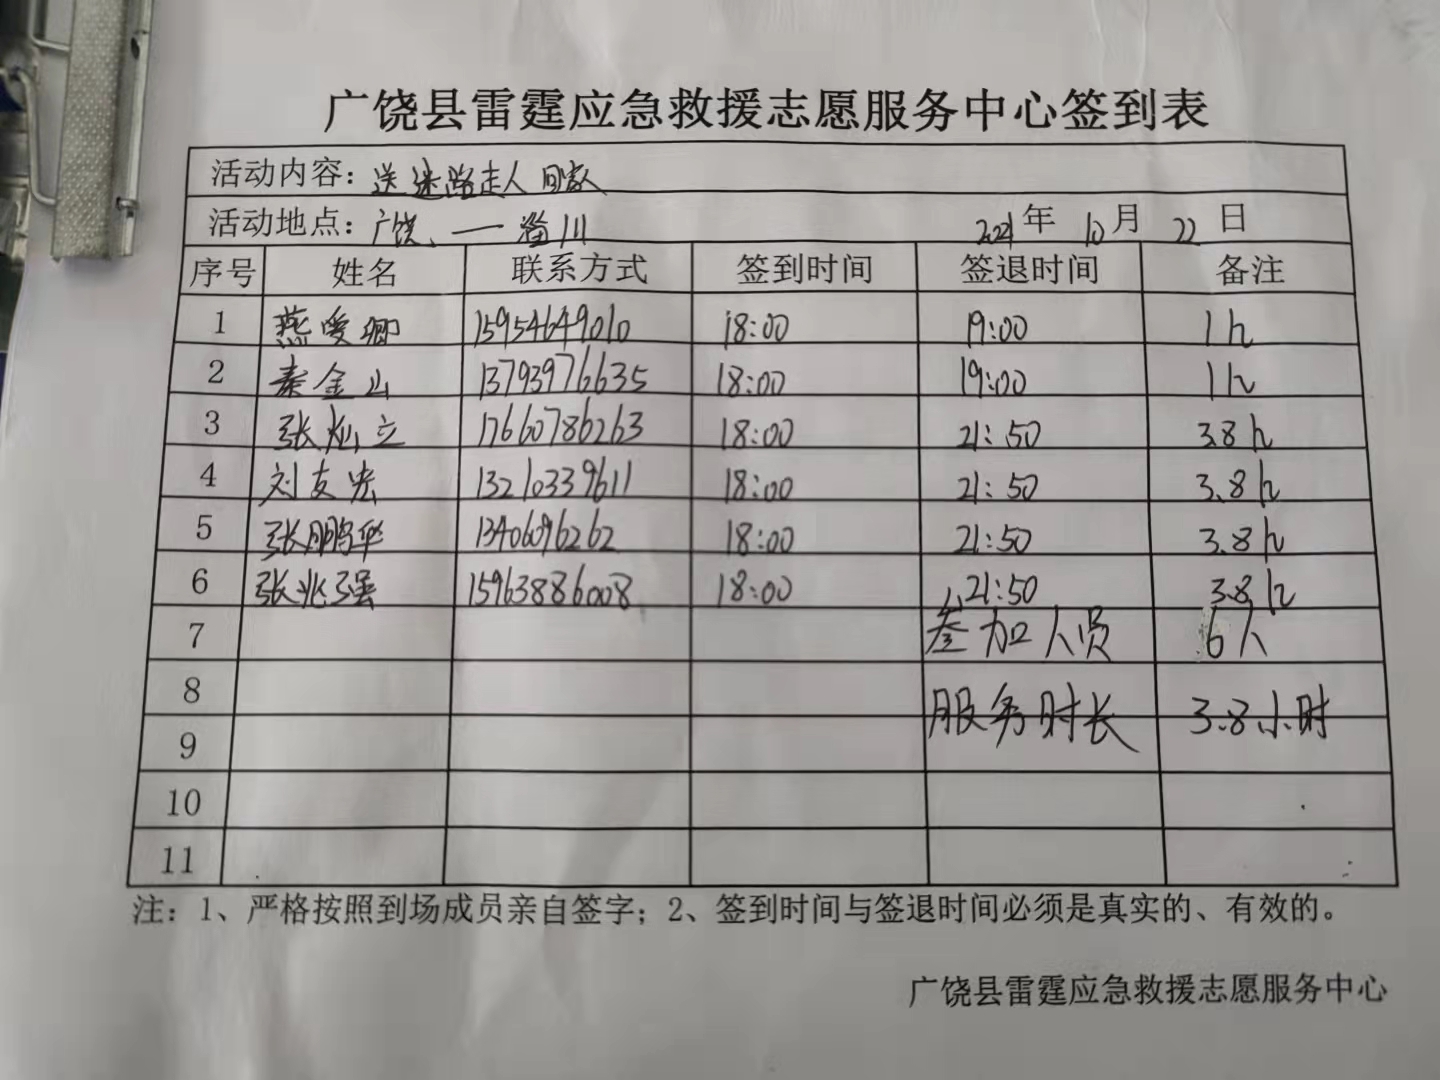 广饶县雷霆应急救援志愿服务中心签到表
活动内容：送迷路走人回家
活动地点：广饶、一淄川 2021年 10月 22日
序号 姓名 联系方式 签到时间 签退时间 备注
1 燕爱卿 15954649010 18:00 19:00 1h
2 秦金山 13793976635 18:00 19:00 1h
3 张灿立 17660786263 18:00 21:50 3.8h
4 刘友宏 13210339611 18:00 21:50 3.8h
5 张鹏华 13406096262 18:00 21:50 3.8h
6 张兆强 15963886008 18:00 21:50 3.8h
7 参加人员 6人
8
服务时长 3.8小时
9
10
11
注：1、严格按照到场成员亲自签字；2、签到时间与签退时间必须是真实的、有效的。
广饶县雷霆应急救援志愿服务中心